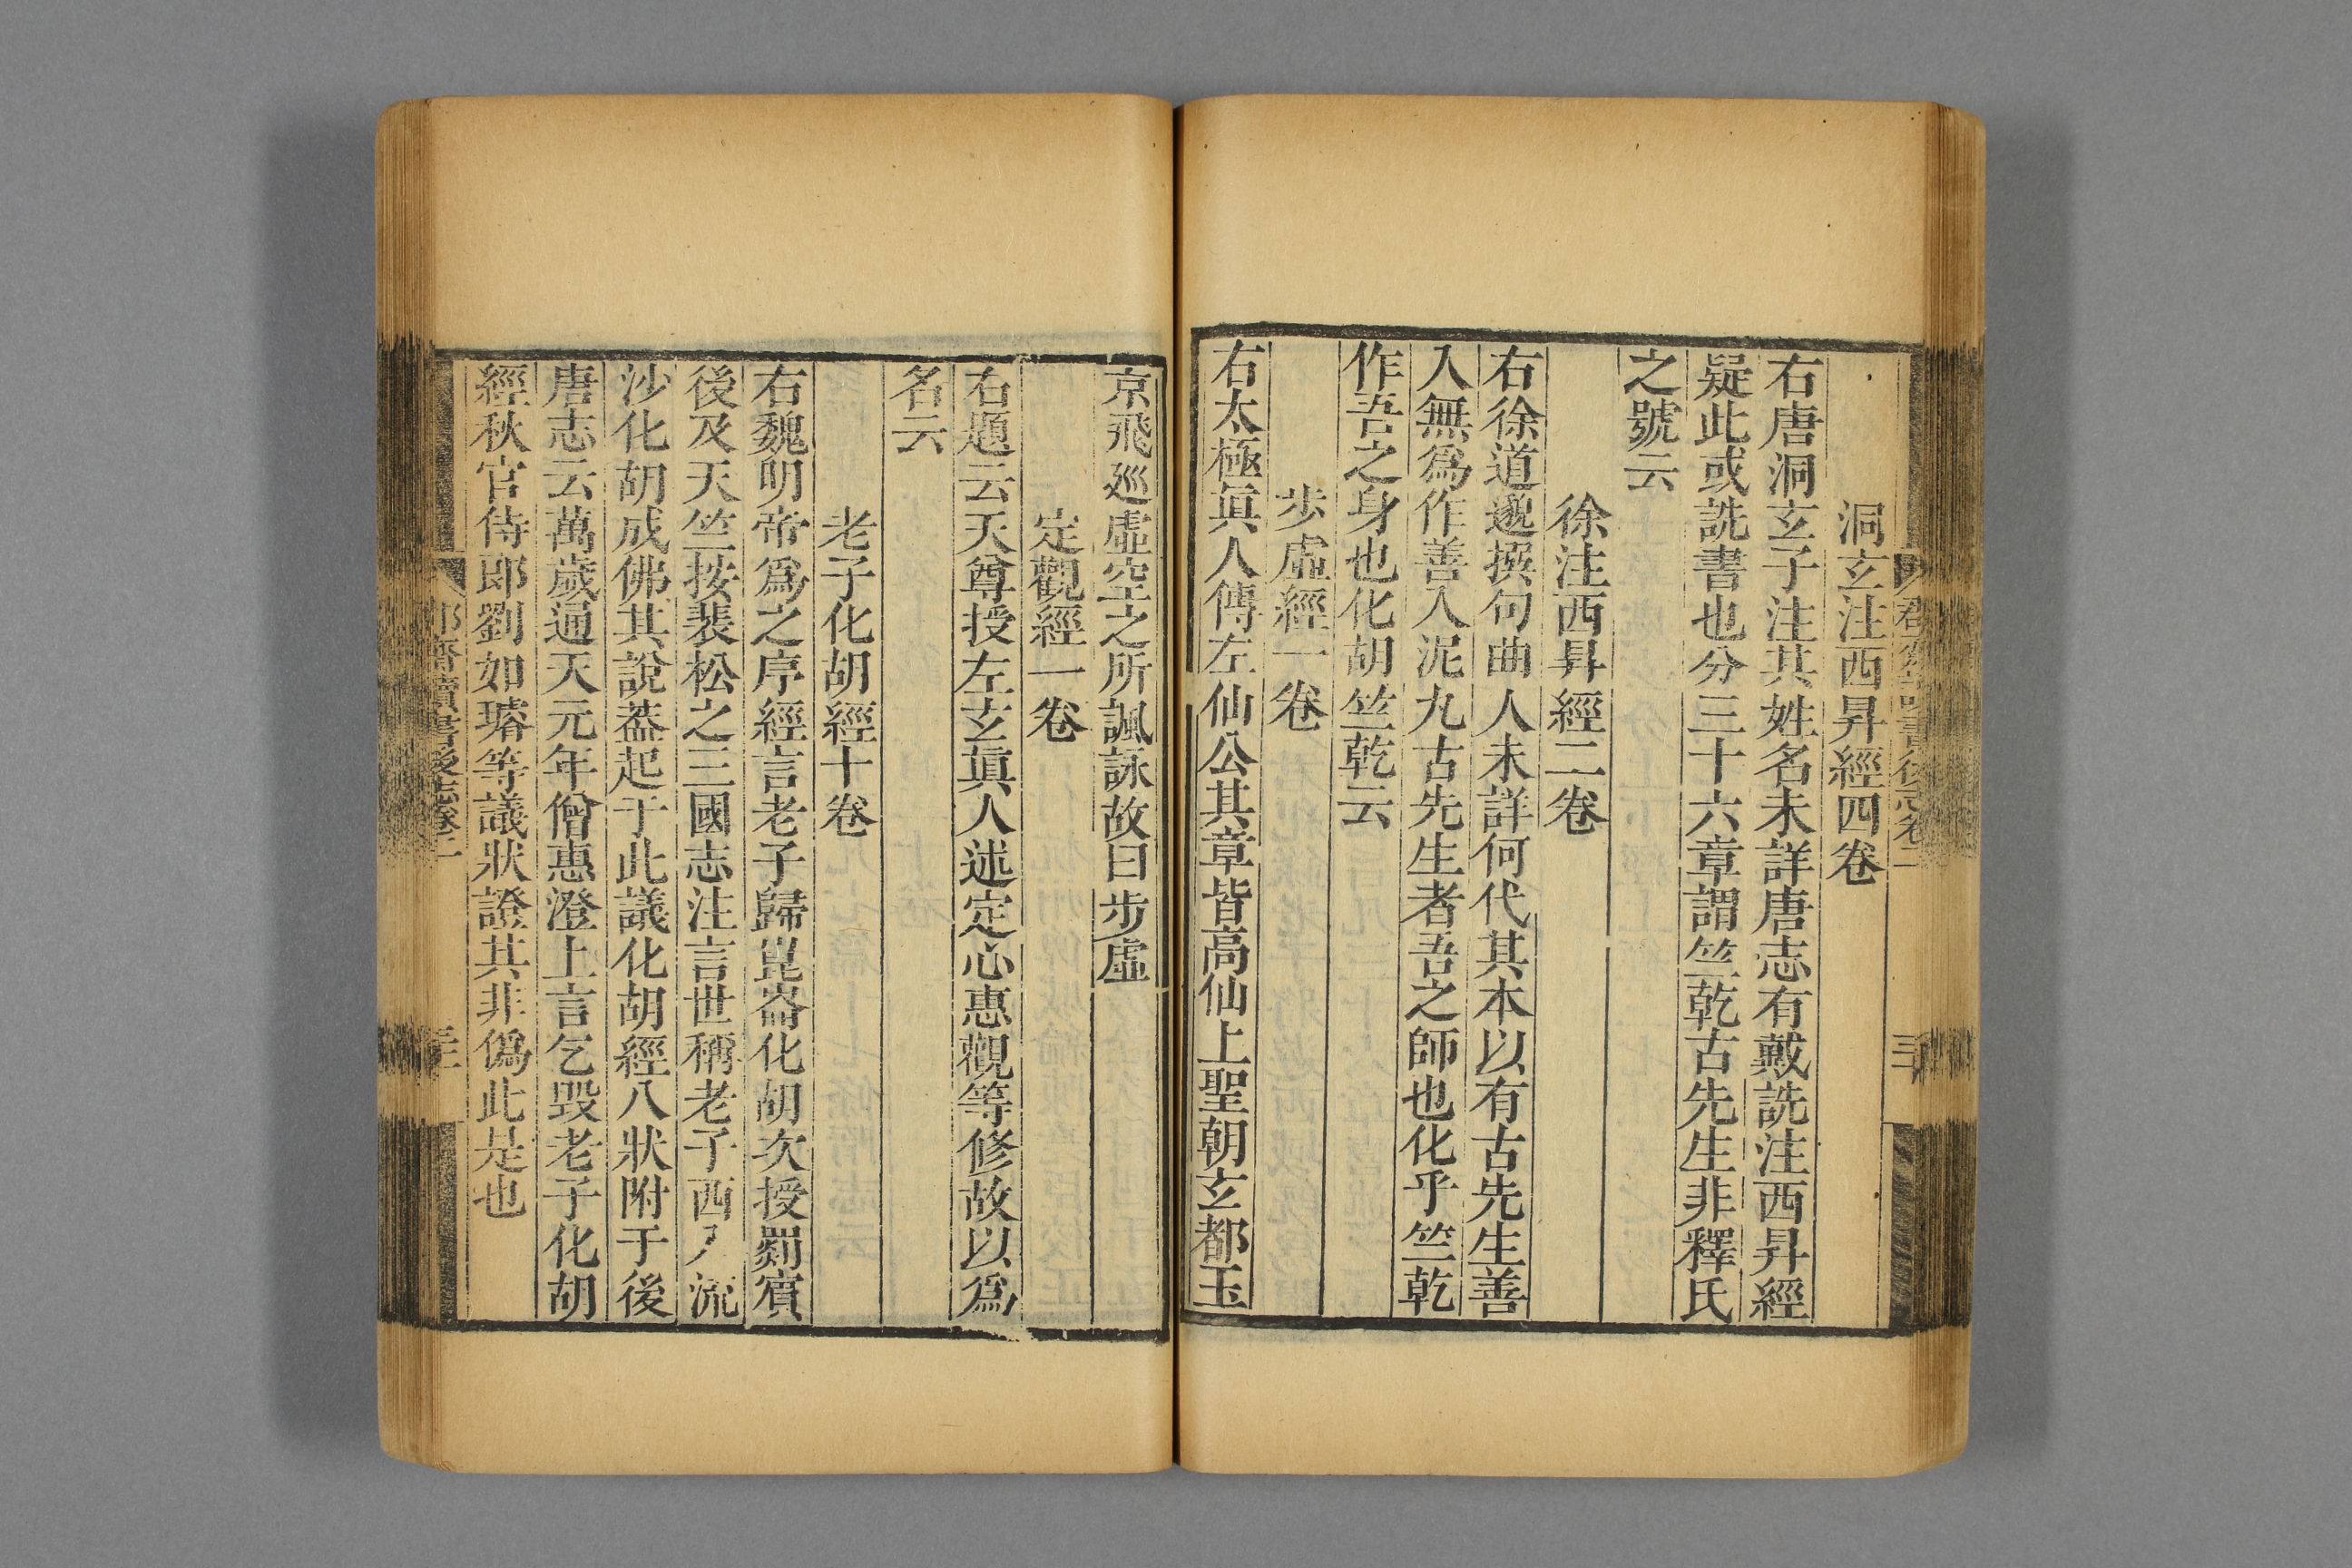 洞玄注西昇經四卷
右唐洞玄子注其姓名未詳唐志有戴詵注西昇經
疑此或詵書也分三十六章謂竺乾古先生非釋氏
之號云
徐注西昇經二卷
右徐道邈撰句曲人未詳何代其本以有古先生善
入無爲作善入泥丸古先生者吾之師也化乎竺乾
作吾之身也化胡竺乾云
步虛經一卷
右太極眞人傳左仙公其章皆高仙上聖朝玄都玉
京飛廵虛空之所諷詠故曰步虛
定觀經一卷
右題云天尊授左玄眞人述定心惠觀等修故以爲
名云
老子化胡經十卷
右魏明帝爲之序經言老子歸崑崙化胡次授罽賓
後及天竺按裴松之三國志注言世稱老子西入流
沙化胡成佛其說葢起于此議化胡經八狀附于後
唐志云萬歲通天元年僧惠澄上言乞毀老子化胡
經秋官侍郎劉如璿等議狀證其非僞此是也
讀書後志卷二